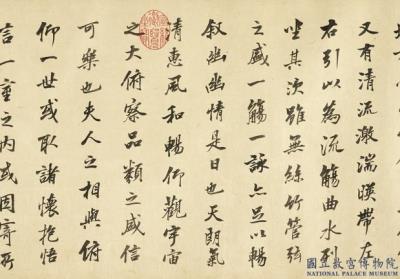 又有清流激湍暎帶左
右引以為流觴曲水列
坐其次雖無絲竹管弦
之盛一觴一詠亦足以暢
叙幽幽情是日也天朗氣
清惠風和暢仰觀宇宙
之大俯察品類之盛信
可樂也夫人之相與俯
仰一世或取諸懷抱悟
言一室之內或因寄所
國立故宮博物院
NATIONAL PALACE MUSEUM